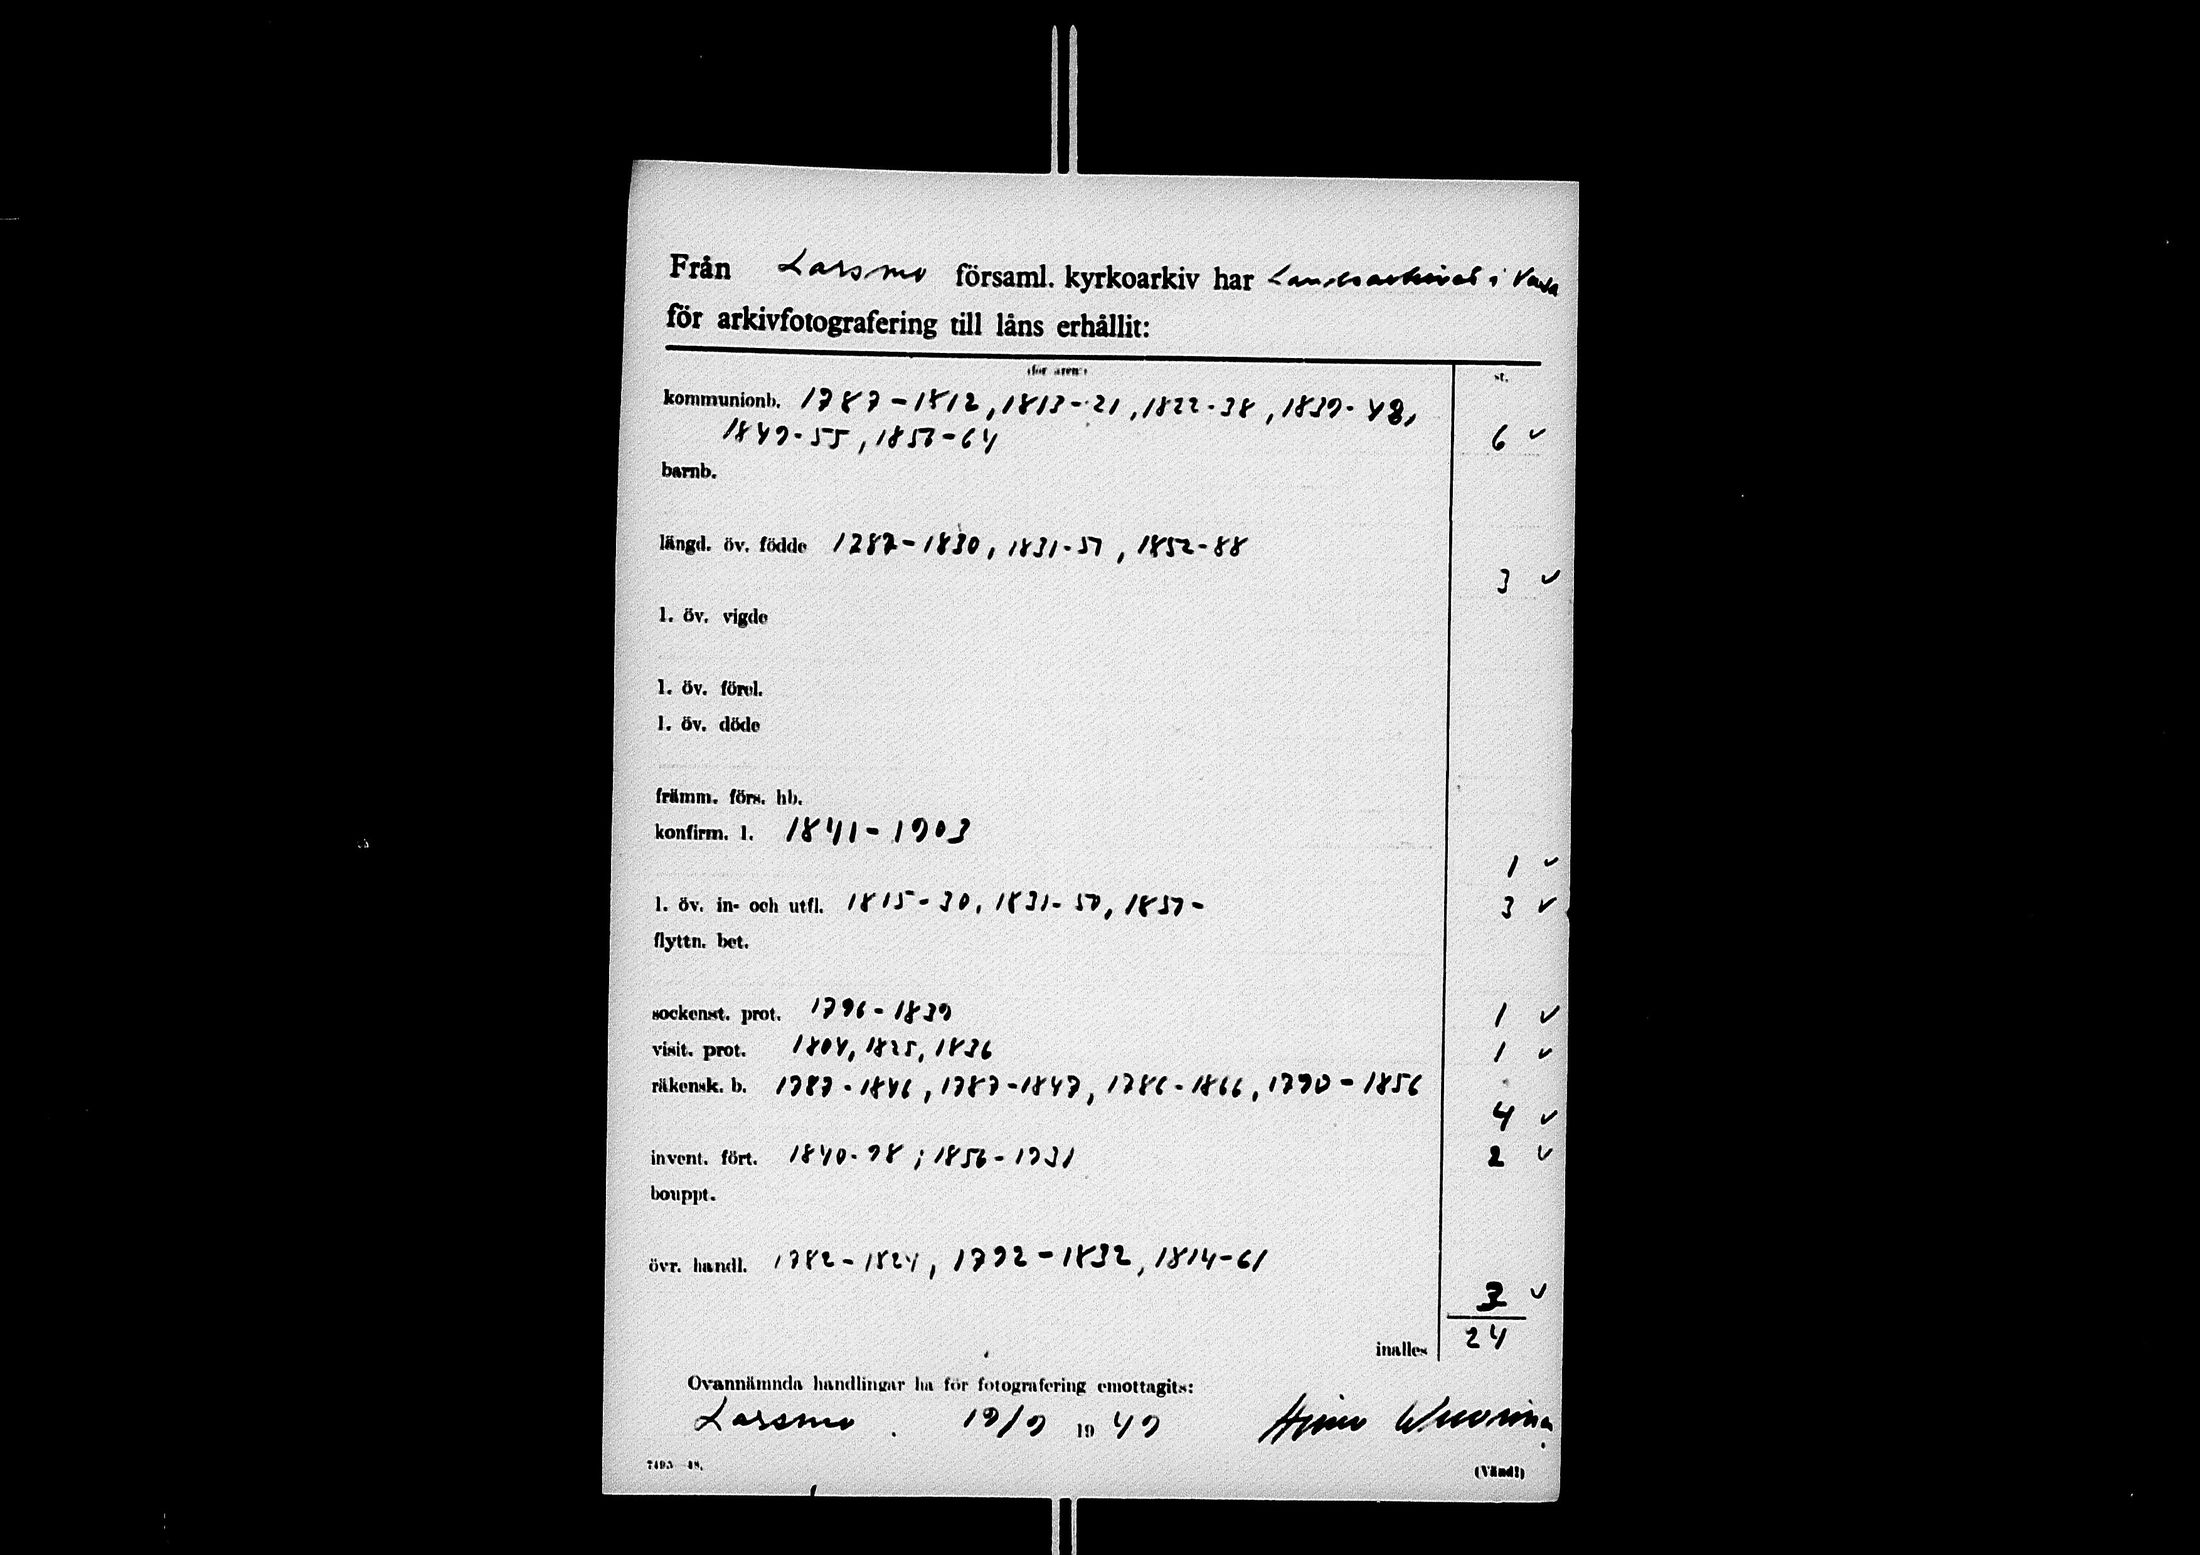 Från Larsmo församl. kyrkoarkiv har Landsarkivet i Vasa
för arkivfotografering till låns erhållit:
(för åren)
st.
kommunionb. 1787-1812, 1813-21, 1822-38, 1839-48,
1849-55, 1856-64
6
barnb.
längd. öv. födde 1787-1830, 1831-51, 1852-88
3
l. öv. vigde
l. öv. förel.
l. öv. döde
främm. förs. hb.
konfirm. l. 1841-1903
1
l. öv. in- och utfl. 1815-30, 1831-50, 1851- 3
flyttn. bet.
sockenst. prot. 1796-1839 1
visit. prot. 1804, 1825, 1836 1
räkensk. b. 1787-1846, 1787-1847, 1786-1866, 1790-1856
4
invent. fört. 1840-98; 1856-1931 2
bouppt.
övr. handl. 1782-1824, 1792-1832, 1814-61
3
inalles 24
Ovannämnda handlingar ha för fotografering emottagits:
Larsmo. 19/9 1949
(Vänd!)